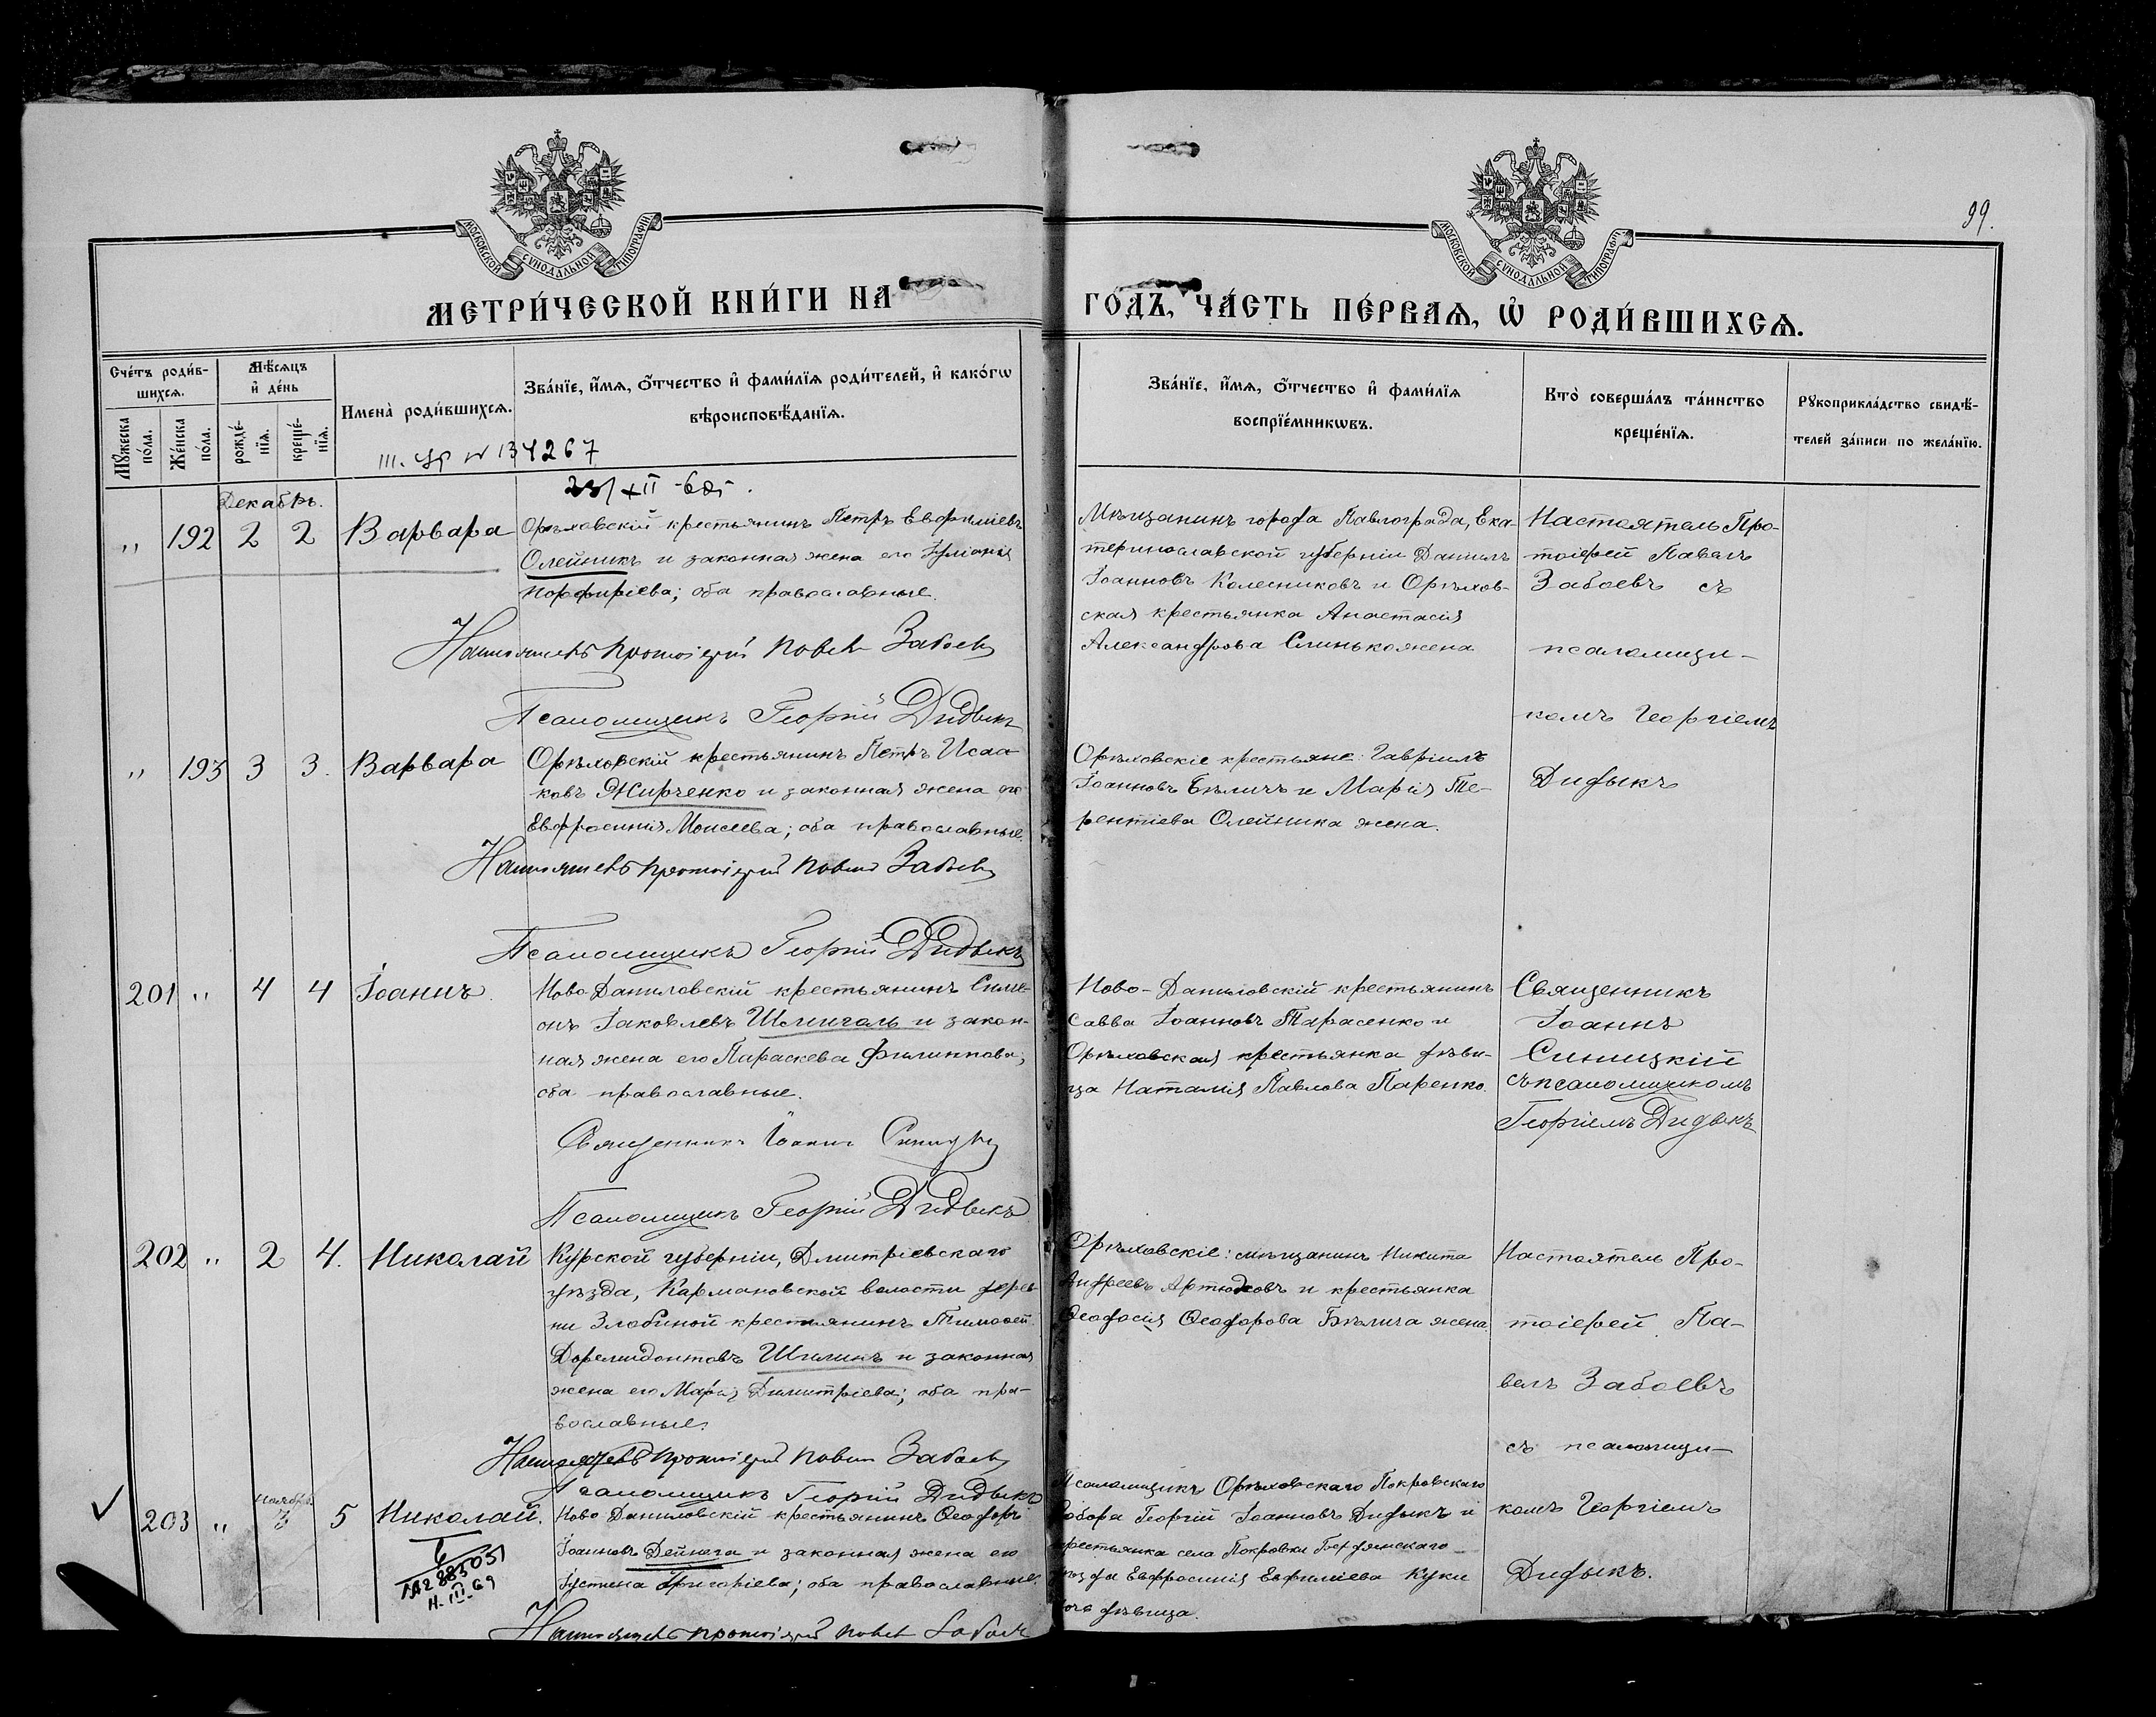 99.
МОСКОВСКОЙ СѴНОДАЛЬНОЙ ТИПОГРАФІИ
МОСКОВСКОЙ СѴНОДАЛЬНОЙ ТИПОГРАФІИ
МЕТРИ́ЧЕСКОЙ КНИ́ГИ НА ГО́ДЪ, ЧА́СТЬ ПЕ́РВАѦ, Ѡ҆ РОДИ́ВШИХСѦ.
Сче́тъ роди́в-
шихсѧ.
Мꙋ́жеска по́ла.
Же́нска по́ла.
Мѣ́сѧцъ
и҆ де́нь
рожде́-
нїѧ.
креще́-
нїѧ.
Имена̀ роди́вшихсѧ.
Зва́нїе, и҆́мѧ, ѻ҆́тчество и҆ фами́лїѧ роди́телей, и҆ како́гѡ
вѣроисповѣ́данїѧ.
Зва́нїе, и҆́мѧ, ѻ҆́тчество и҆ фами́лїѧ
воспрїе́мникѡвъ.
Кто̀ соверша́лъ та́инство
креще́нїѧ.
Рꙋкоприкла́дство свидѣ́-
телей за́писи по жела́нїю.
134267
Декабрь.
" 192 2 2 Варвара
Орѣховскій крестьянинъ Петръ Евфиміевъ
Олейникъ и законная жена его Іуліанія
Порфиріева; оба православные.
Настоятель Протоіерей Павелъ Забоевъ
Псаломщикъ Георгій Дидыкъ
Мѣщанинъ города Павлограда, Ека-
теринославской губерніи Даніилъ
Іоанновъ Колесниковъ и Орѣхов-
ская крестьянка Анастасія
Александрова Слинько жена
Настоятель Про-
тоіерей Павелъ
Забоевъ съ
псаломщи-
комъ Георгіемъ
Дидыкъ
" 193 3 3. Варвара
Орѣховскій крестьянинъ Петръ Исаа-
ковъ Жирченко и законная жена его
Евфросинія Моисеева; оба православные.
Настоятель Протоіерей Павелъ Забоевъ
Псаломщикъ Георгій Дидыкъ
Орѣховскіе крестьяне: Гавріилъ
Іоанновъ Бѣличъ и Марія Те-
рентіева Олейника жена.
201 " 4 4 Іоаннъ
Ново Даниловскій крестьянинъ Симе-
онъ Іаковлевъ Шмигаль и закон-
ная жена его Параскева Филиппова;
оба православные.
Священникъ Іоаннъ Синицкій
Псаломщикъ Георгій Дидыкъ
Ново-Даниловскій крестьянинъ
Савва Іоанновъ Тарасенко и
Орѣховская крестьянка дѣви-
ца Наталія Павлова Паренко.
Священникъ
Іоаннъ
Синицкій
съ псаломщикомъ
Георгіемъ Дидыкъ
202 " 2 4. Николай
Курской губерніи, Дмитріевскаго
уѣзда, Кармановской волости дерев-
ни Злобиной крестьянинъ Тимоѳей
Доремидонтовъ Шилинъ и законная
жена его Марія Димитріева; оба пра-
вославные.
Настоятель Протоіерей Павелъ Забоевъ
Псаломщикъ Георгій Дидыкъ
Орѣховскіе: мѣщанинъ Никита
Андреевъ Артюховъ и крестьянка
Ѳеодосія Ѳеодорова Бѣлича жена.
Настоятель Про-
тоіерей Па-
велъ Забоевъ
съ псаломщи-
комъ Георгіемъ
Дидыкъ.
203 " Ноября 3 5 Николай.
Ново Даниловскій крестьянинъ Ѳеодоръ
Іоанновъ Дейнега и законная жена его
Іустина Григоріева; оба православные.
Настоятель Протоіерей Павелъ Забоевъ
Псаломщикъ Орѣховскаго Покровскаго
Собора Георгій Іоанновъ Дидыкъ и
крестьянка села Покровки Бердянскаго
уѣзда Евфросинія Евфиміева Куки
дѣвица.